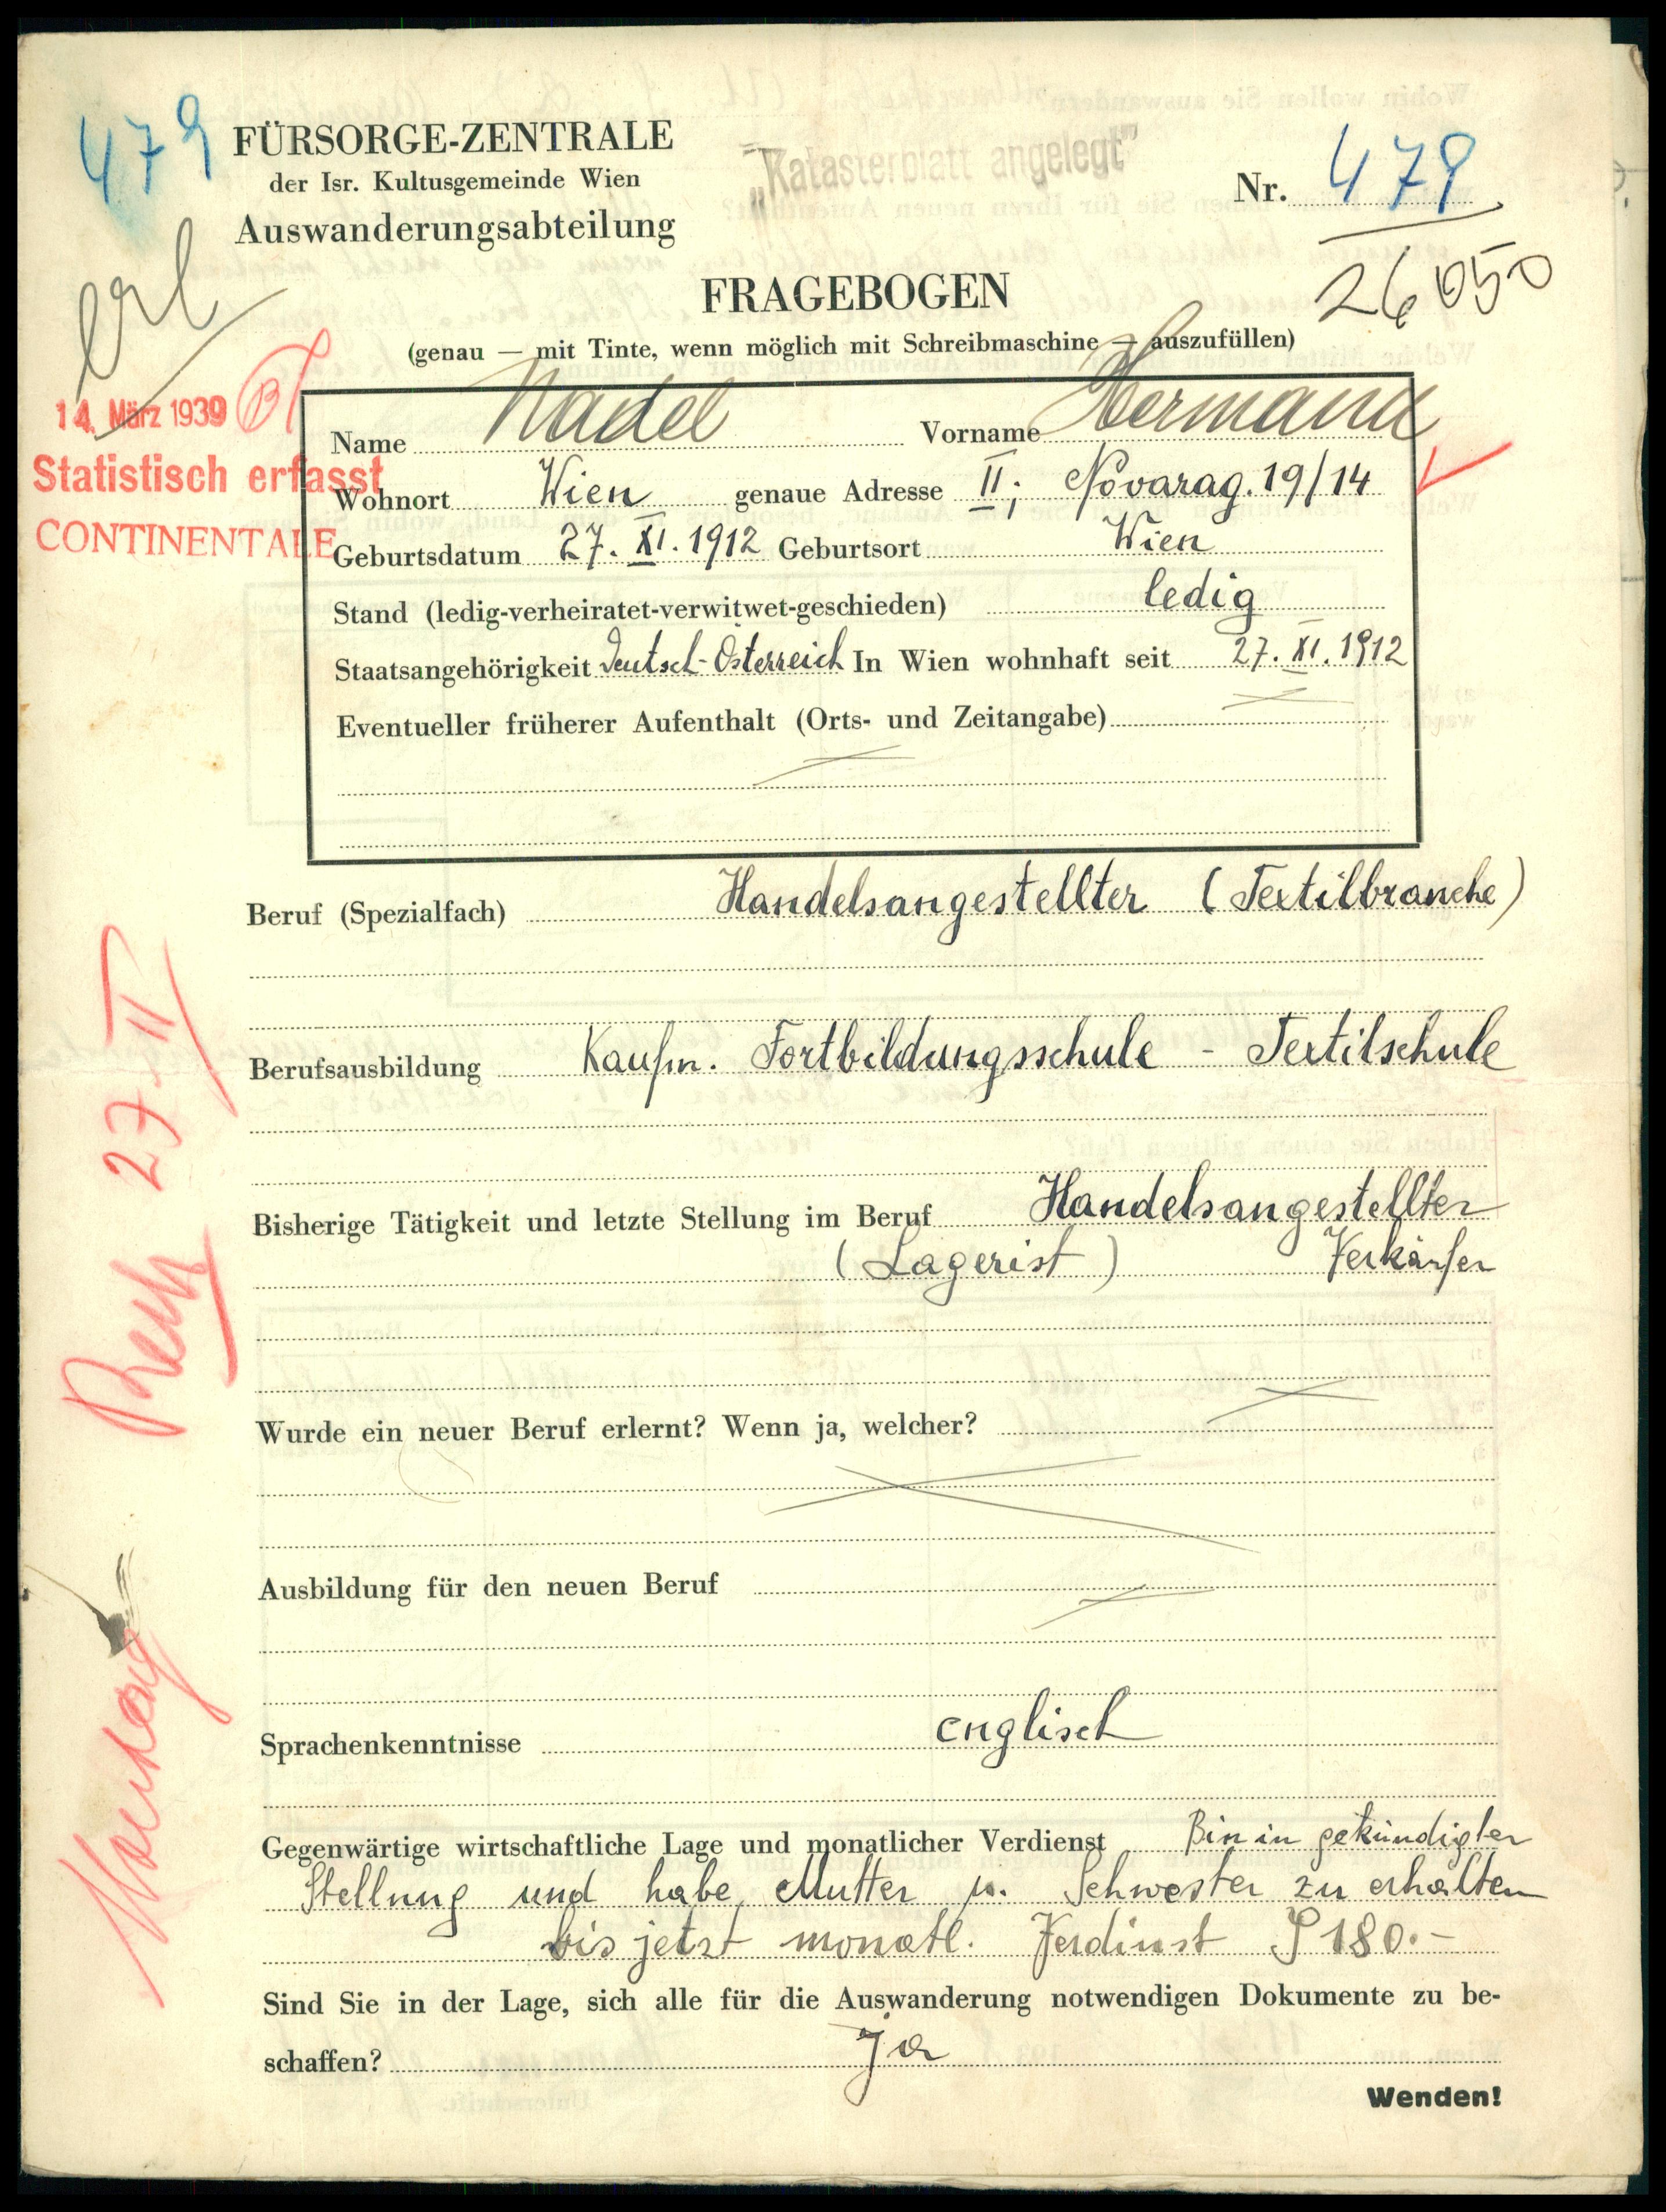 479
FÜRSORGE-ZENTRALE
der Isr. Kultusgemeinde Wien
Auswanderungsabteilung
"Katasterblatt angelegt"
Nr. 479
26050
erl
FRAGEBOGEN
(genau — mit Tinte, wenn möglich mit Schreibmaschine — auszufüllen)
14. März 1939
Statistisch erfasst
CONTINENTALE
Name Nadel Vorname Hermann
Wohnort Wien genaue Adresse II; Novarag. 19/14
Geburtsdatum 27. XI. 1912 Geburtsort Wien
Stand (ledig-verheiratet-verwitwet-geschieden) ledig
Staatsangehörigkeit Deutsch-Österreich In Wien wohnhaft seit 27. XI. 1912
Eventueller früherer Aufenthalt (Orts- und Zeitangabe)
Beruf (Spezialfach) Handelsangestellter (Textilbranche)
Berufsausbildung Kaufm. Fortbildungsschule - Textilschule
27-II
Bisherige Tätigkeit und letzte Stellung im Beruf Handelsangestellter
(Lagerist) Verkäufer
Wurde ein neuer Beruf erlernt? Wenn ja, welcher?
Ausbildung für den neuen Beruf
Sprachenkenntnisse englisch
Gegenwärtige wirtschaftliche Lage und monatlicher Verdienst Bin in gekündigter
Stellung und habe Mutter u. Schwester zu erhalten
bis jetzt monatl. Verdinst S 180.-
Sind Sie in der Lage, sich alle für die Auswanderung notwendigen Dokumente zu be-
schaffen? ja
Wenden!